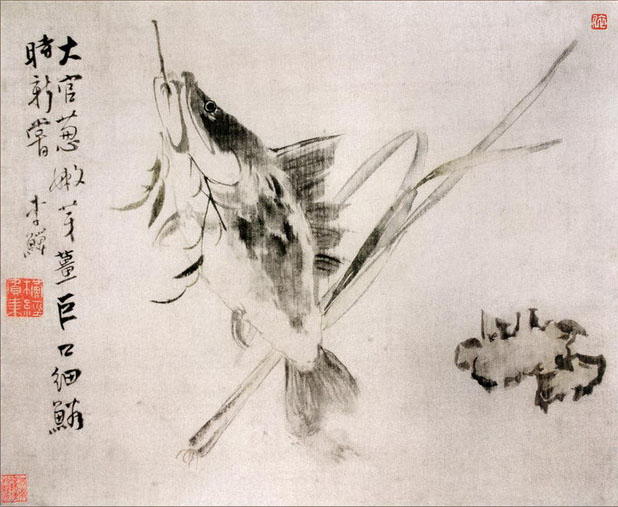 大官葱嫩芽薑巨口細鱗
時新嘗 李鱓